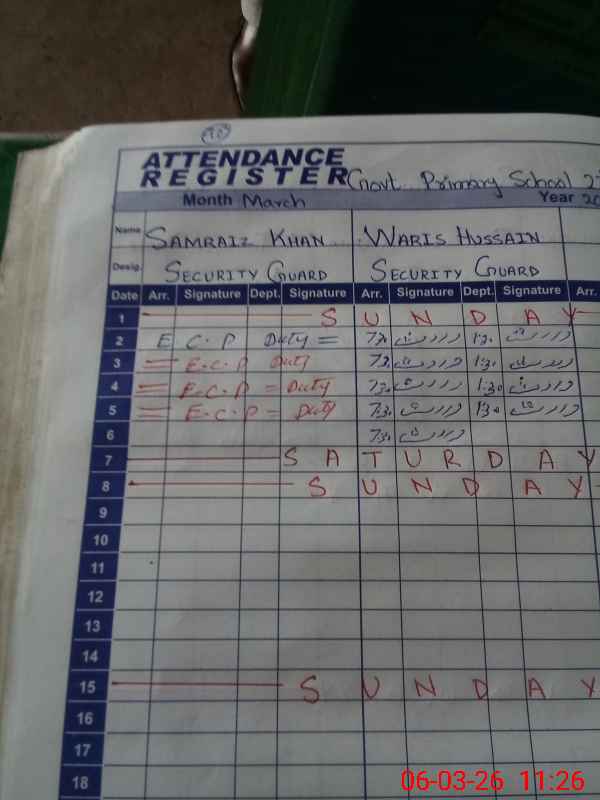 10
ATTENDANCE
REGISTER Govt. Primary School
Month March Year 20
Name SAMRAIZ KHAN WARIS HUSSAIN
Desig. SECURITY GUARD SECURITY GUARD
Date Arr. Signature Dept. Signature Arr. Signature Dept. Signature Arr.
1 SUNDAY
2 E.C.P Duty = 7:30 وارث 1:30 وارث
3 = E.C.P Duty 7:30 وارث 1:30 وارث
4 = E.C.P = Duty 7:30 وارث 1:30 وارث
5 = E.C.P = Duty 7:30 وارث 1:30 وارث
6 7:30 وارث
7 SATURDAY
8 SUNDAY
9
10
11
12
13
14
15 SUNDAY
16
17
18
06-03-26 11:26